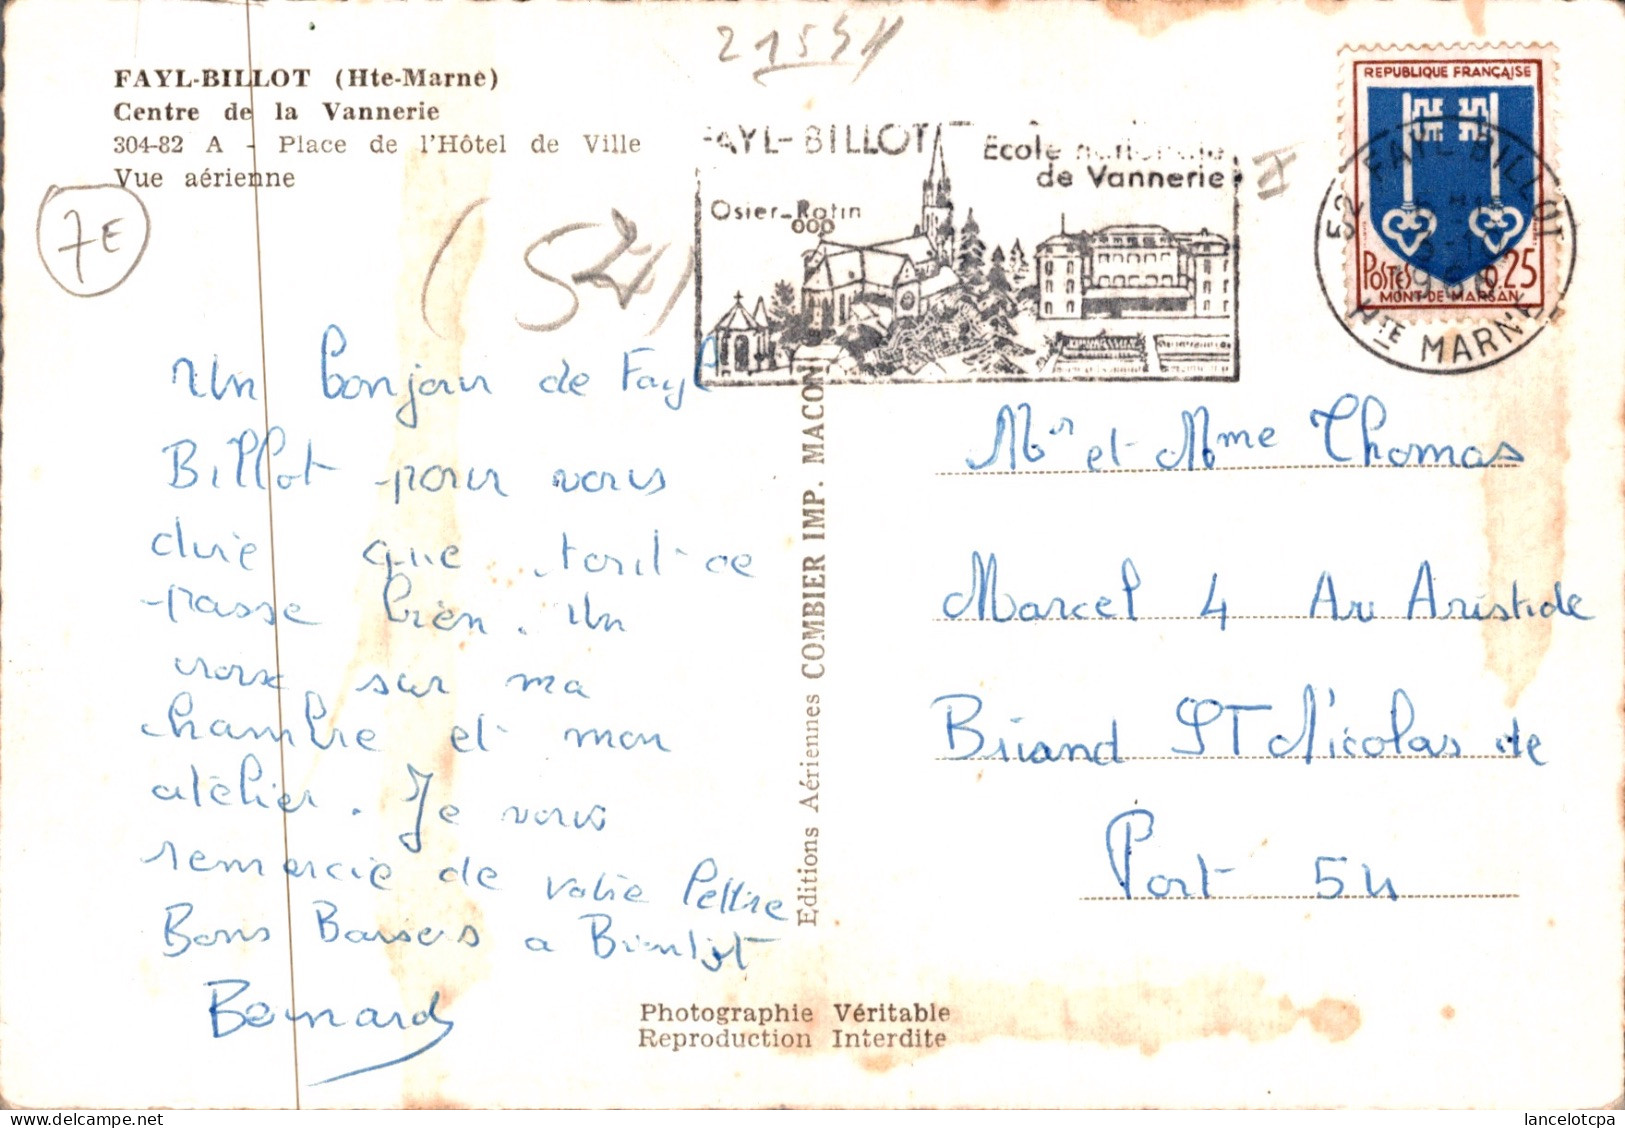 21554
FAYL-BILLOT (Hte-Marne)
Centre de la Vannerie
304-82 A - Place de l'Hôtel de Ville
Vue aérienne
7E
(54)
FAYL-BILLOT
Ecole nationale
de Vannerie
Osier-Rotin
REPUBLIQUE FRANÇAISE
POSTES 0,25
MONT-DE-MARSAN
52 FAYL-BILLOT
HTE MARNE
Un bonjour de Fayl
Billot pour vous
dire que tout ce
passe bien. Un
croix sur ma
chambre et mon
atelier. Je vous
remercie de votre lettre
Bons Baisers a Bientot
Bernard
Editions Aériennes COMBIER IMP. MACON
Mr et Mme Thomas
Marcel 4 Av Aristide
Briand ST Nicolas de
Port 54
Photographie Véritable
Reproduction Interdite
lancelotcpa